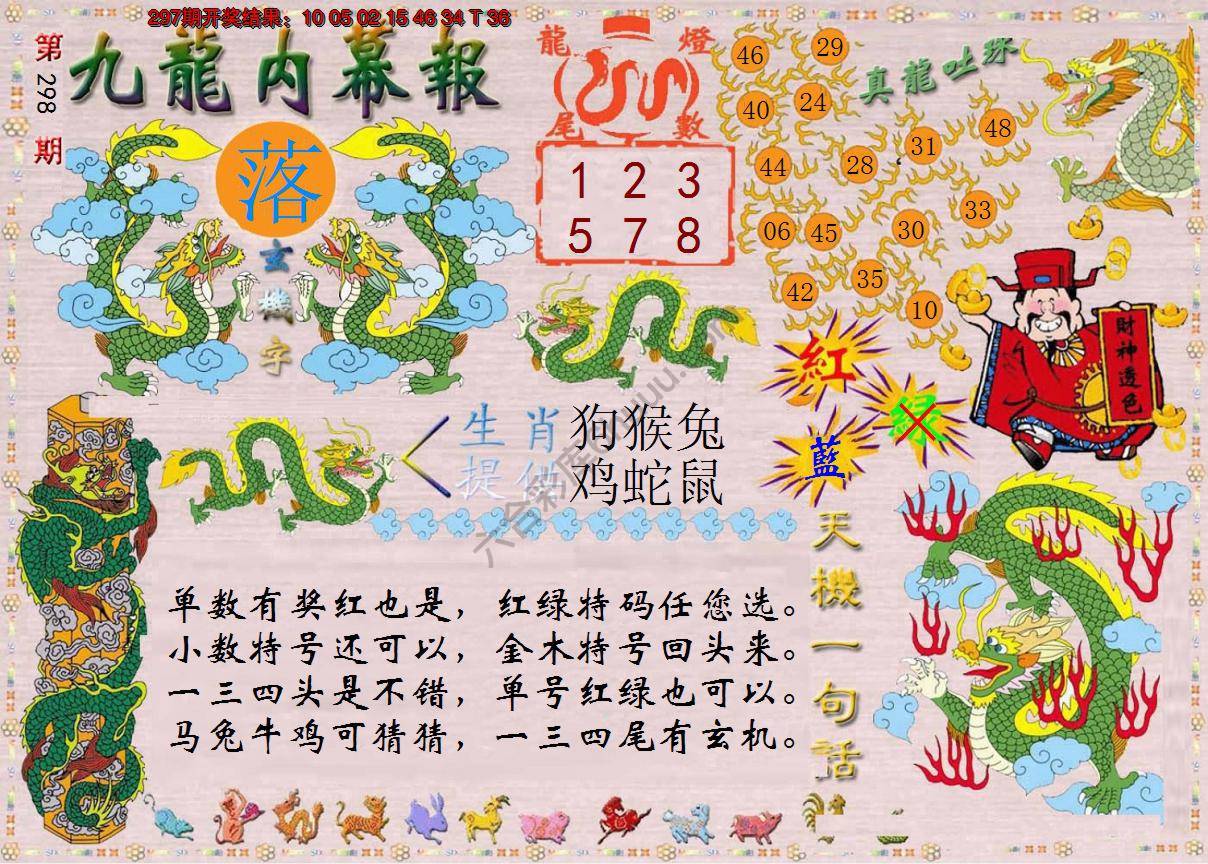 297期开奖结果：10 05 02 15 46 34 T 36
第298期
九龍内幕報
落
玄機字
龍燈尾數
1 2 3
5 7 8
真龍吐珠
46 29
40 24
31 48
44 28
33
06 45 30
35
42
10
財神透色
紅
绿
藍
生肖 狗猴兔
提供 鸡蛇鼠
天機一句話
单数有奖红也是，红绿特码任您选。
小数特号还可以，金木特号回头来。
一三四头是不错，单号红绿也可以。
马兔牛鸡可猜猜，一三四尾有玄机。